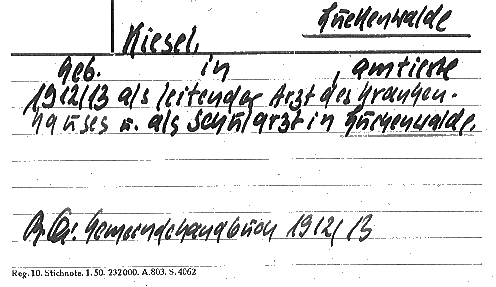 Luckenwalde
Kiesel,
geb. in , amtierte
1912/13 als leitender Arzt des Kranken-
hauses u. als Schularzt in Luckenwalde.
Gemeindehandbuch 1912/13
Reg. 10. Stichnote. 1. 50. 232000. A. 803. S. 4062